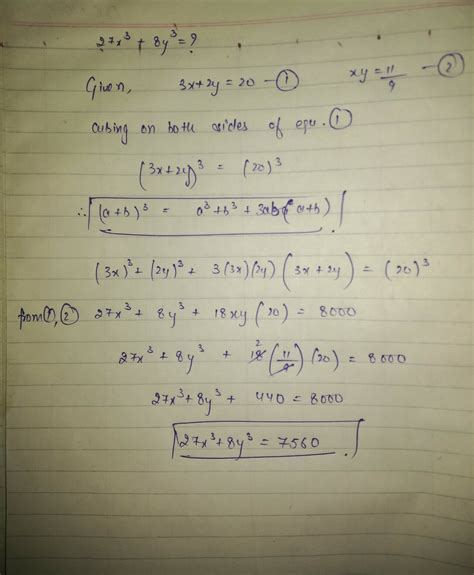 27x³ + 8y³ = ?
Given, 3x+2y = 20 — ① xy = 11/9 — ②
cubing on both sides of equ. ①
(3x+2y)³ = (20)³
∴ (a+b)³ = a³+b³+3ab(a+b)
(3x)³+(2y)³ + 3(3x)(2y)(3x+2y) = (20)³
from ①, ② 27x³ + 8y³ + 18xy(20) = 8000
27x³+8y³ + 18 2 (11/9)(20) = 8000
27x³+8y³ + 440 = 8000
27x³+8y³ = 7560